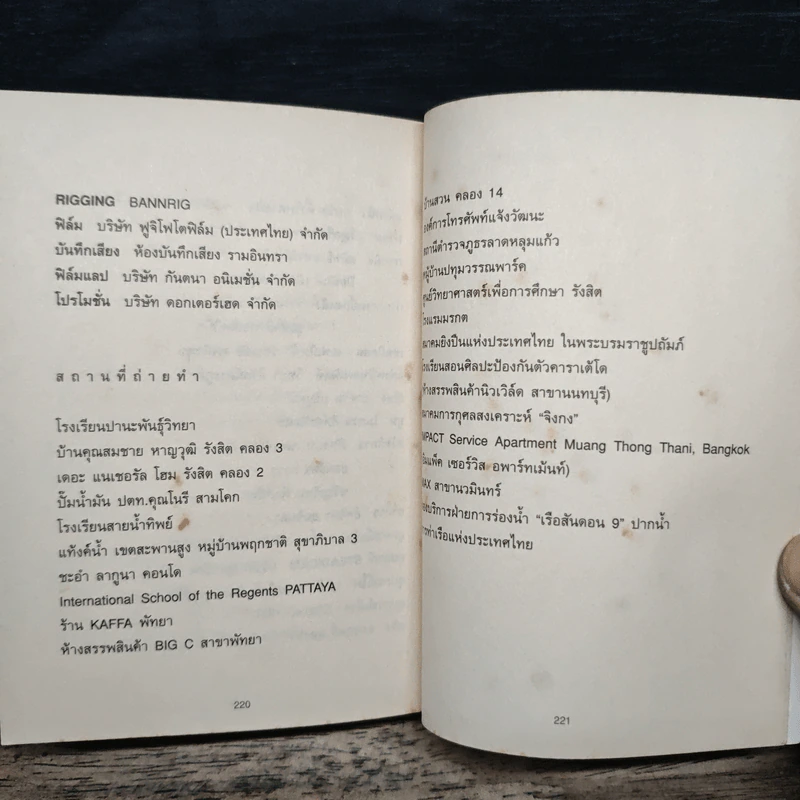 RIGGING BANNRIG
ฟิล์ม บริษัท ฟูจิโฟโตฟิล์ม (ประเทศไทย) จำกัด
บันทึกเสียง ห้องบันทึกเสียง รามอินทรา
ฟิล์มแลป บริษัท กันตนา อนิเมชั่น จำกัด
โปรโมชั่น บริษัท ดอกเตอร์เฮด จำกัด
สถานที่ถ่ายทำ
โรงเรียนปานะพันธุ์วิทยา
บ้านคุณสมชาย หาญวุฒิ รังสิต คลอง 3
เดอะ แนเชอรัล โฮม รังสิต คลอง 2
ปั๊มน้ำมัน ปตท.คุณโนรี สามโคก
โรงเรียนสายน้ำทิพย์
แท้งค์น้ำ เขตสะพานสูง หมู่บ้านพฤกชาติ สุขาภิบาล 3
ชะอำ ลากูนา คอนโด
International School of the Regents PATTAYA
ร้าน KAFFA พัทยา
ห้างสรรพสินค้า BIG C สาขาพัทยา
220
บ้านสวน คลอง 14
องค์การโทรศัพท์แจ้งวัฒนะ
สถานีตำรวจภูธรลาดหลุมแก้ว
หมู่บ้านปทุมวรรณพาร์ค
ศูนย์วิทยาศาสตร์เพื่อการศึกษา รังสิต
โรงแรมมรกต
สมาคมยิงปืนแห่งประเทศไทย ในพระบรมราชูปถัมภ์
โรงเรียนสอนศิลปะป้องกันตัวคาราเต้โด
ห้างสรรพสินค้านิวเวิล์ด สาขานนทบุรี)
สมาคมการกุศลสงเคราะห์ “จิงกง”
IMPACT Service Apartment Muang Thong Thani, Bangkok
(อิมแพ็ค เซอร์วิส อพาร์ทเม้นท์)
MAX สาขานวมินทร์
กองบริการฝ่ายการร่องน้ำ “เรือสันดอน 9” ปากน้ำ
การท่าเรือแห่งประเทศไทย
221